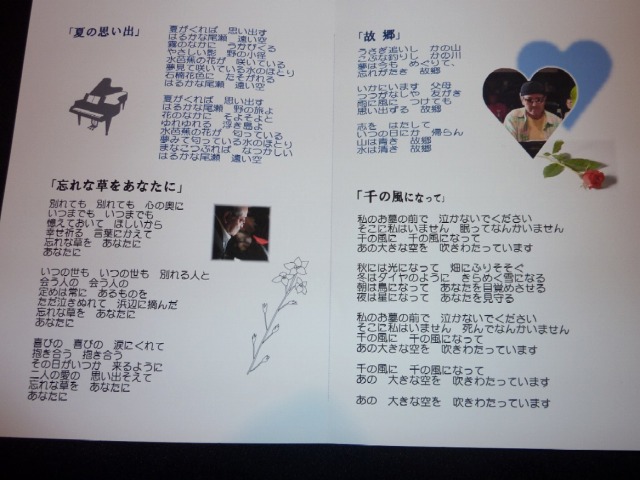 「夏の思い出」
夏がくれば　思い出す
はるかな尾瀬　遠い空
霧のなかに　うかびくる
やさしい影　野の小径
水芭蕉の花が　咲いている
夢見て咲いている水のほとり
石楠花色に　たそがれる
はるかな尾瀬　遠い空
夏がくれば　思い出す
はるかな尾瀬　野の旅よ
花のなかに　そよそよと
ゆれゆれる　浮き島よ
水芭蕉の花が　匂っている
夢みて匂っている水のほとり
まなこつぶれば　なつかしい
はるかな尾瀬　遠い空
「忘れな草をあなたに」
別れても　別れても　心の奥に
いつまでも　いつまでも
憶えておいて　ほしいから
幸せ祈る　言葉にかえて
忘れな草を　あなたに
あなたに
いつの世も　いつの世も　別れる人と
会う人の　会う人の
定めは常に　あるものを
ただ泣きぬれて　浜辺に摘んだ
忘れな草を　あなたに
あなたに
喜びの　喜びの　涙にくれて
抱き合う　抱き合う
その日がいつか　来るように
二人の愛の　思い出そえて
忘れな草を　あなたに
あなたに
「故 郷」
うさぎ追いし　かの山
こぶな釣りし　かの川
夢は今も　めぐりて、
忘れがたき　故郷
いかにいます　父母
つつがなしや　友がき
雨に風に　つけても
思い出ずる　故郷
志を　はたして
いつの日にか　帰らん
山は青き　故郷
水は清き　故郷
「千の風になって」
私のお墓の前で　泣かないでください
そこに私はいません　眠ってなんかいません
千の風に　千の風になって
あの大きな空を　吹きわたっています
秋には光になって　畑にふりそそぐ
冬はダイヤのように　きらめく雪になる
朝は鳥になって　あなたを目覚めさせる
夜は星になって　あなたを見守る
私のお墓の前で　泣かないでください
そこに私はいません　死んでなんかいません
千の風に　千の風になって
あの大きな空を　吹きわたっています
千の風に　千の風になって
あの　大きな空を　吹きわたっています
あの　大きな空を　吹きわたっています